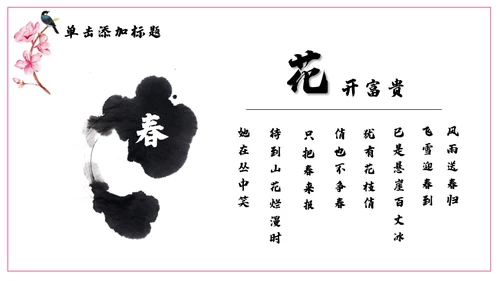 单击添加标题
春
花开富贵
风雨送春归
飞雪迎春到
已是悬崖百丈冰
犹有花枝俏
俏也不争春
只把春来报
待到山花烂漫时
她在丛中笑